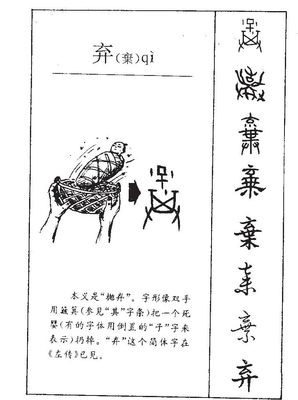 弃(棄)qì
本义是“抛弃”。字形像双手
用簸箕(参见“其”字条)把一个死
婴(有的字体用倒置的“子”字来
表示)扔掉。“弃”这个简体字在
《左传》已见。
棄
棄
弃